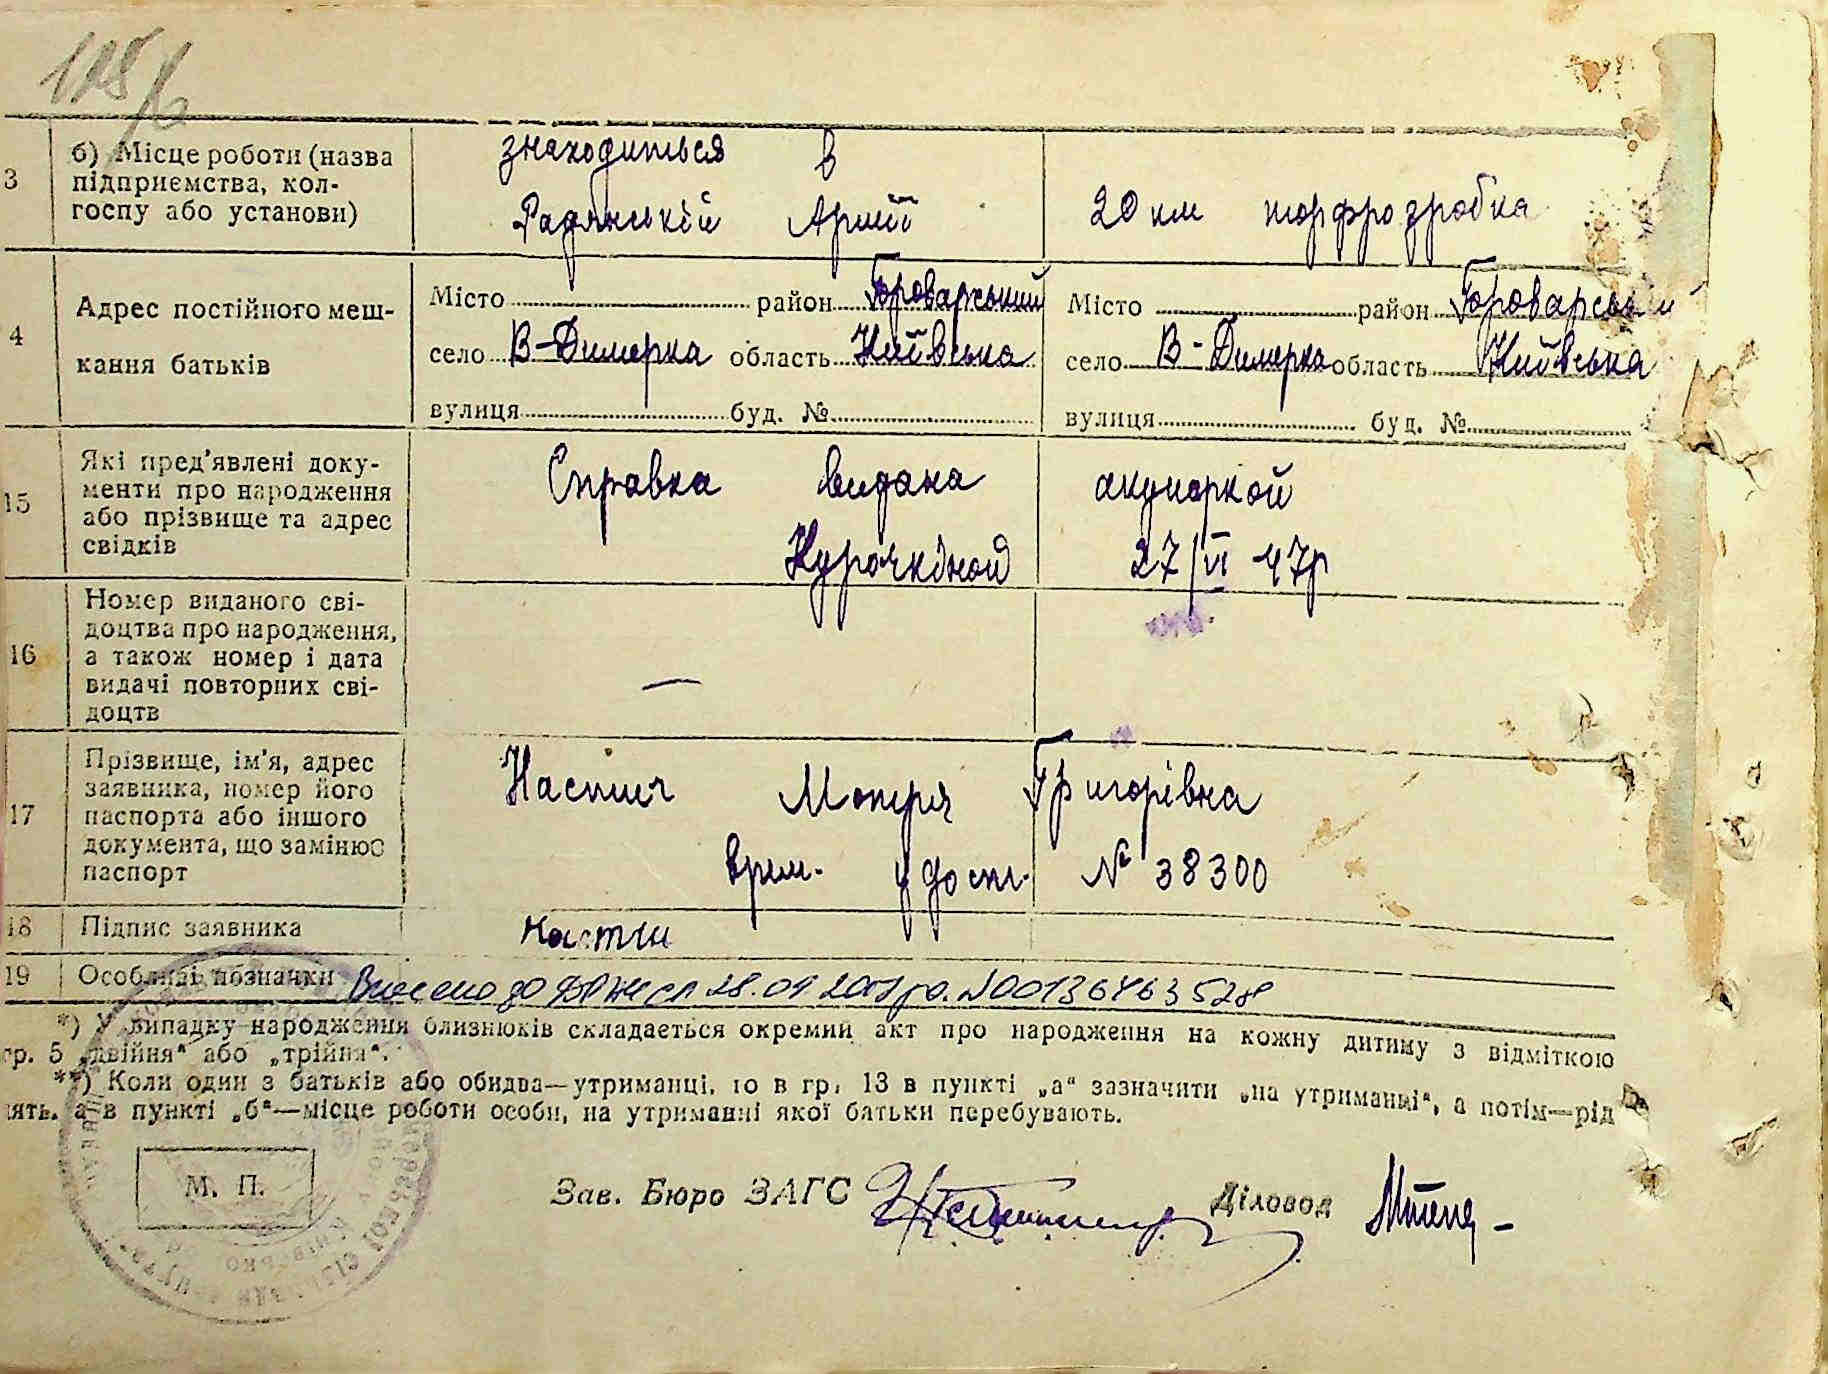 3 б) Місце роботи (назва підприємства, колгоспу або установи)
знаходиться в
Радянській Армії
20 км торфрозробка
4 Адрес постійного мешкання батьків
Місто район Броварський
село В-Димерка область Київська
вулиця буд. №
Місто район Броварський
село В-Димерка область Київська
вулиця буд. №
15 Які пред'явлені документи про народження або прізвище та адрес свідків
Справка видана акушоркой
Курочкіной 27/VI 47р
16 Номер виданого свідоцтва про народження, а також номер і дата видачі повторних свідоцтв
—
17 Прізвище, ім'я, адрес заявника, номер його паспорта або іншого документа, що замінює паспорт
Мотря Григорівна
врем. удост. № 38300
18 Підпис заявника
19 Особливі позначки Внесено до
*) У випадку народження близнюків складається окремий акт про народження на кожну дитину з відміткою
гр. 5 „двійня" або „трійня".
**) Коли один з батьків або обидва—утриманці, то в гр. 13 в пункті „а" зазначити „на утриманні", а потім—рід
нять, а в пункті „б"—місце роботи особи, на утриманні якої батьки перебувають.
М. П.
Зав. Бюро ЗАГС Діловод